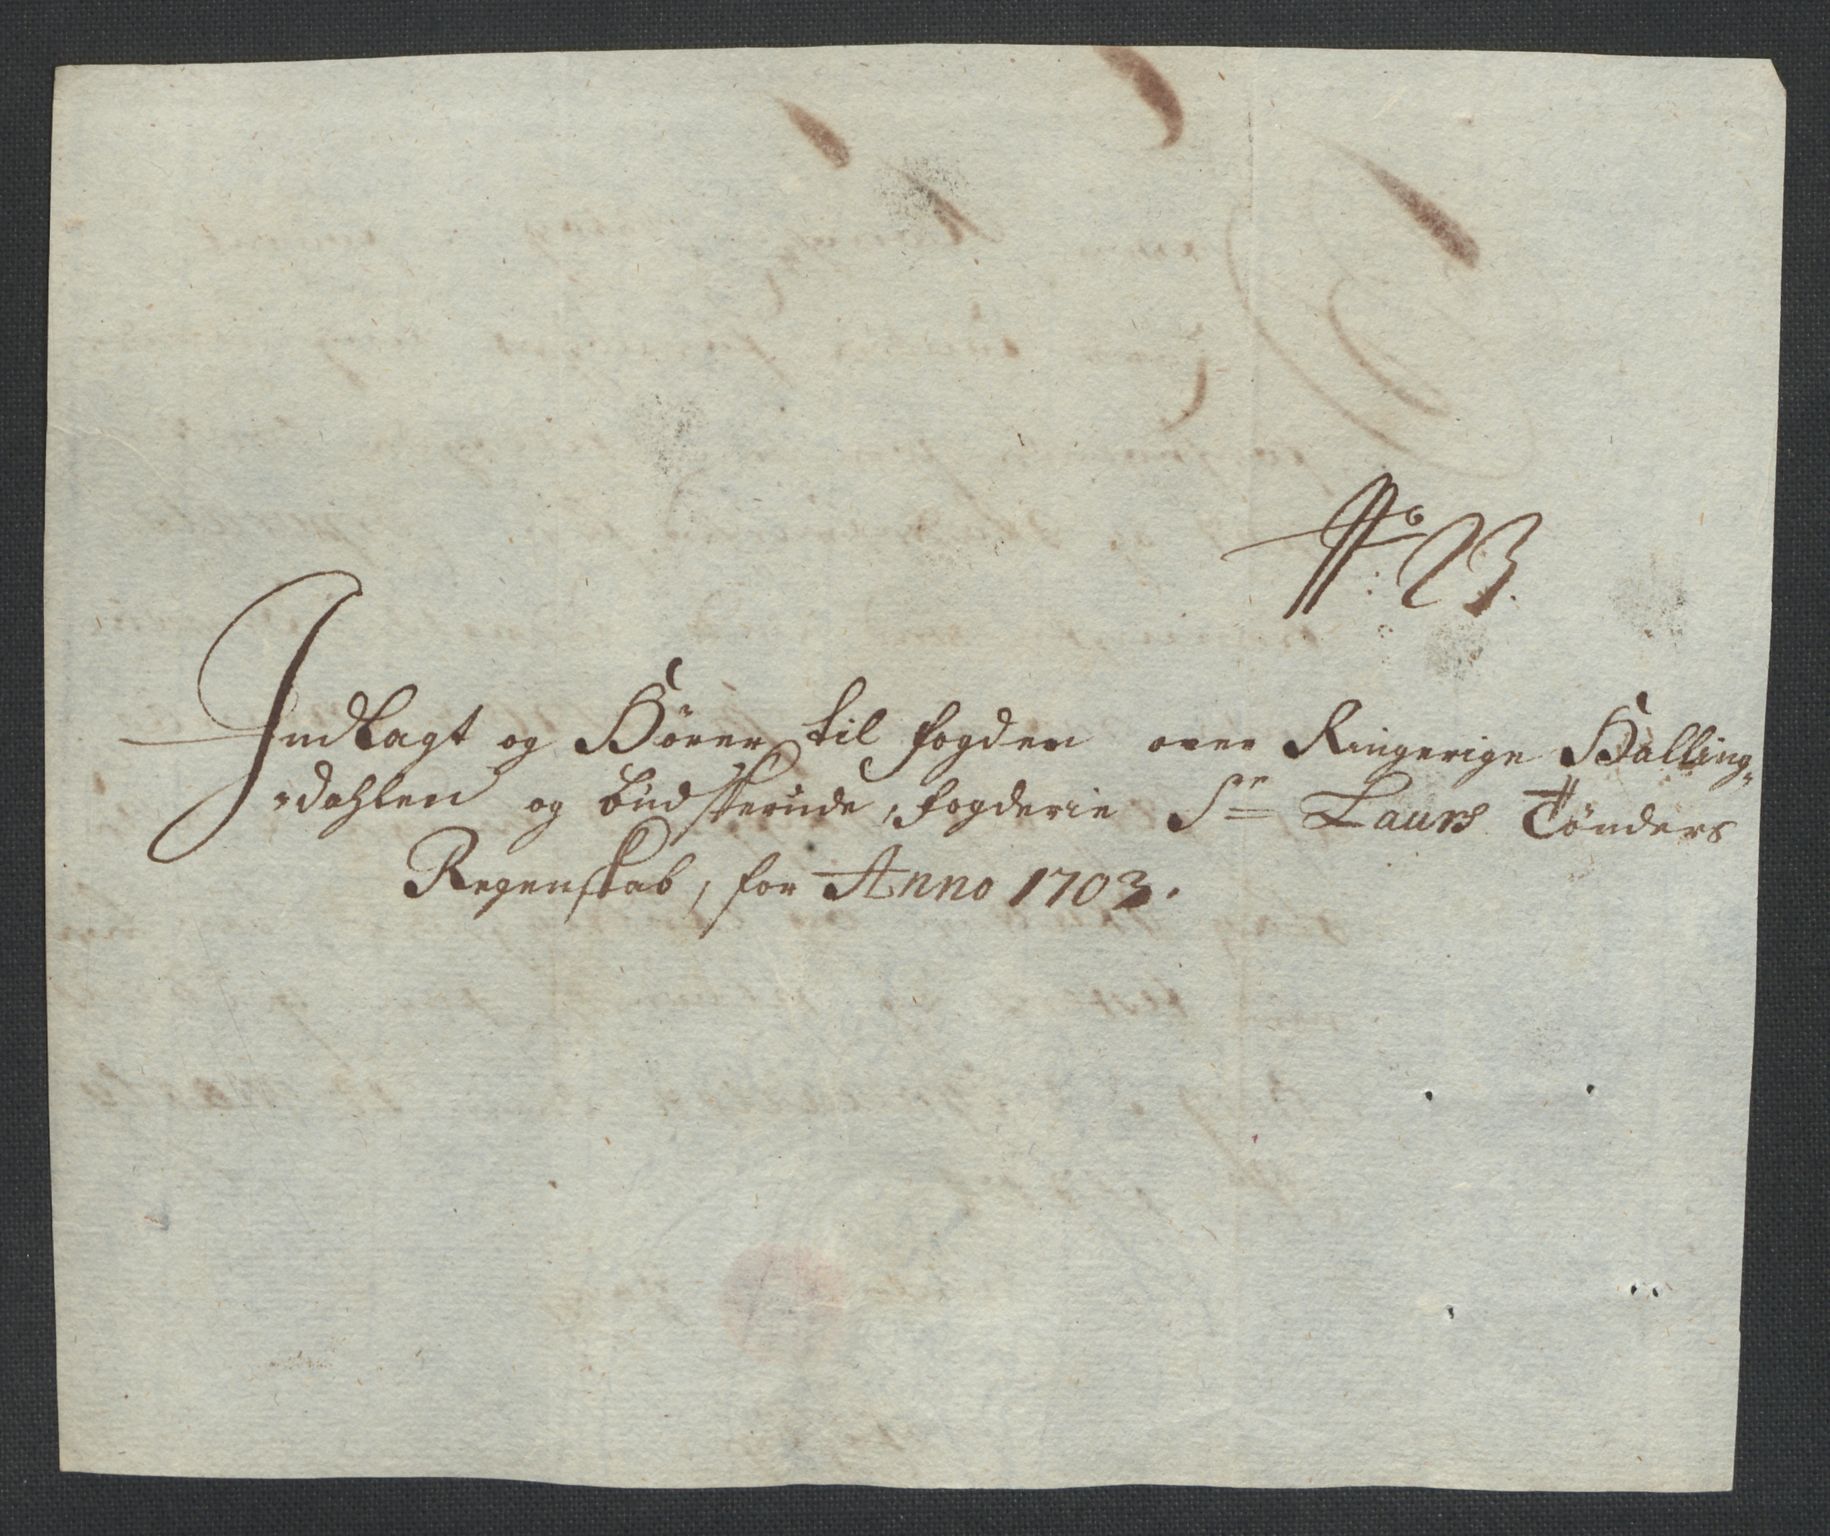 No 23.
Indlagt og Hörer til fogden over Ringerige Halling-
dahlen og Budskerude, fogderie Sr Laurs Tönders
Regenskab, for Anno 1703.